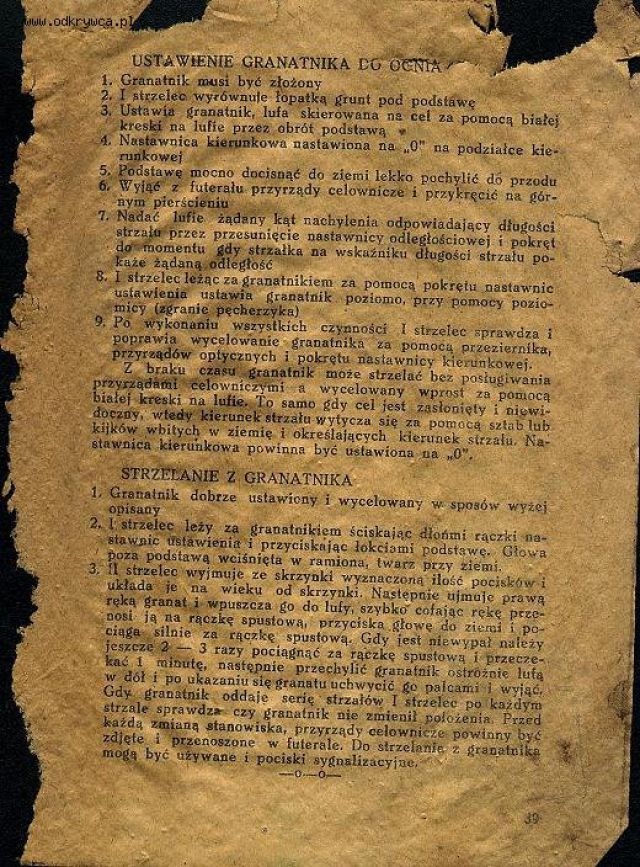 www.odkrywca.pl
USTAWIENIE GRANATNIKA DO OGNIA
1. Granatnik musi być złożony
2. I strzelec wyrównuje łopatką grunt pod podstawę
3. Ustawia granatnik, lufa skierowana na cel za pomocą białej
kreski na lufie przez obrót podstawą
4. Nastawnica kierunkowa nastawiona na „0" na podziałce kie-
runkowej
5. Podstawę mocno docisnąć do ziemi lekko pochylić do przodu
6. Wyjąć z futerału przyrządy celownicze i przykręcić na gór-
nym pierścieniu
7. Nadać lufie żądany kąt nachylenia odpowiadający długości
strzału przez przesunięcie nastawnicy odległościowej i pokręt
do momentu gdy strzałka na wskaźniku długości strzału po-
każe żądaną odległość
8. I strzelec leżąc za granatnikiem za pomocą pokrętu nastawnic
ustawienia ustawia granatnik poziomo, przy pomocy pozio-
micy (zgranie pęcherzyka)
9. Po wykonaniu wszystkich czynności I strzelec sprawdza i
poprawia wycelowanie granatnika za pomocą przeziernika,
przyrządów optycznych i pokrętu nastawnicy kierunkowej.
Z braku czasu granatnik może strzelać bez posługiwania
przyrządami celowniczymi a wycelowany wprost za pomocą
białej kreski na lufie. To samo gdy cel jest zasłonięty i niewi-
doczny, wtedy kierunek strzału wytycza się za pomocą sztab lub
kijków wbitych w ziemię i określających kierunek strzału. Na-
stawnica kierunkowa powinna być ustawiona na „0".
STRZELANIE Z GRANATNIKA
1. Granatnik dobrze ustawiony i wycelowany w sposów wyżej
opisany
2. I strzelec leży za granatnikiem ściskając dłońmi rączki na-
stawnic ustawienia i przyciskając łokciami podstawę. Głowa
poza podstawą wciśnięta w ramiona, twarz przy ziemi.
3. II strzelec wyjmuje ze skrzynki wyznaczoną ilość pocisków i
układa je na wieku od skrzynki. Następnie ujmuje prawą
ręką granat i wpuszcza go do lufy, szybko cofając rękę prze-
nosi ją na rączkę spustową, przyciska głowę do ziemi i po-
ciąga silnie za rączkę spustową. Gdy jest niewypał należy
jeszcze 2 — 3 razy pociągnąć za rączkę spustową i przecze-
kać 1 minutę, następnie przechylić granatnik ostróżnie lufą
w dół i po ukazaniu się granatu uchwycić go palcami i wyjąć.
Gdy granatnik oddaje serię strzałów I strzelec po każdym
strzale sprawdza czy granatnik nie zmienił położenia. Przed
każdą zmianą stanowiska, przyrządy celownicze powinny być
zdjęte i przenoszone w futerale. Do strzelania z granatnika
mogą być używane i pociski sygnalizacyjne.
—o—o—
39